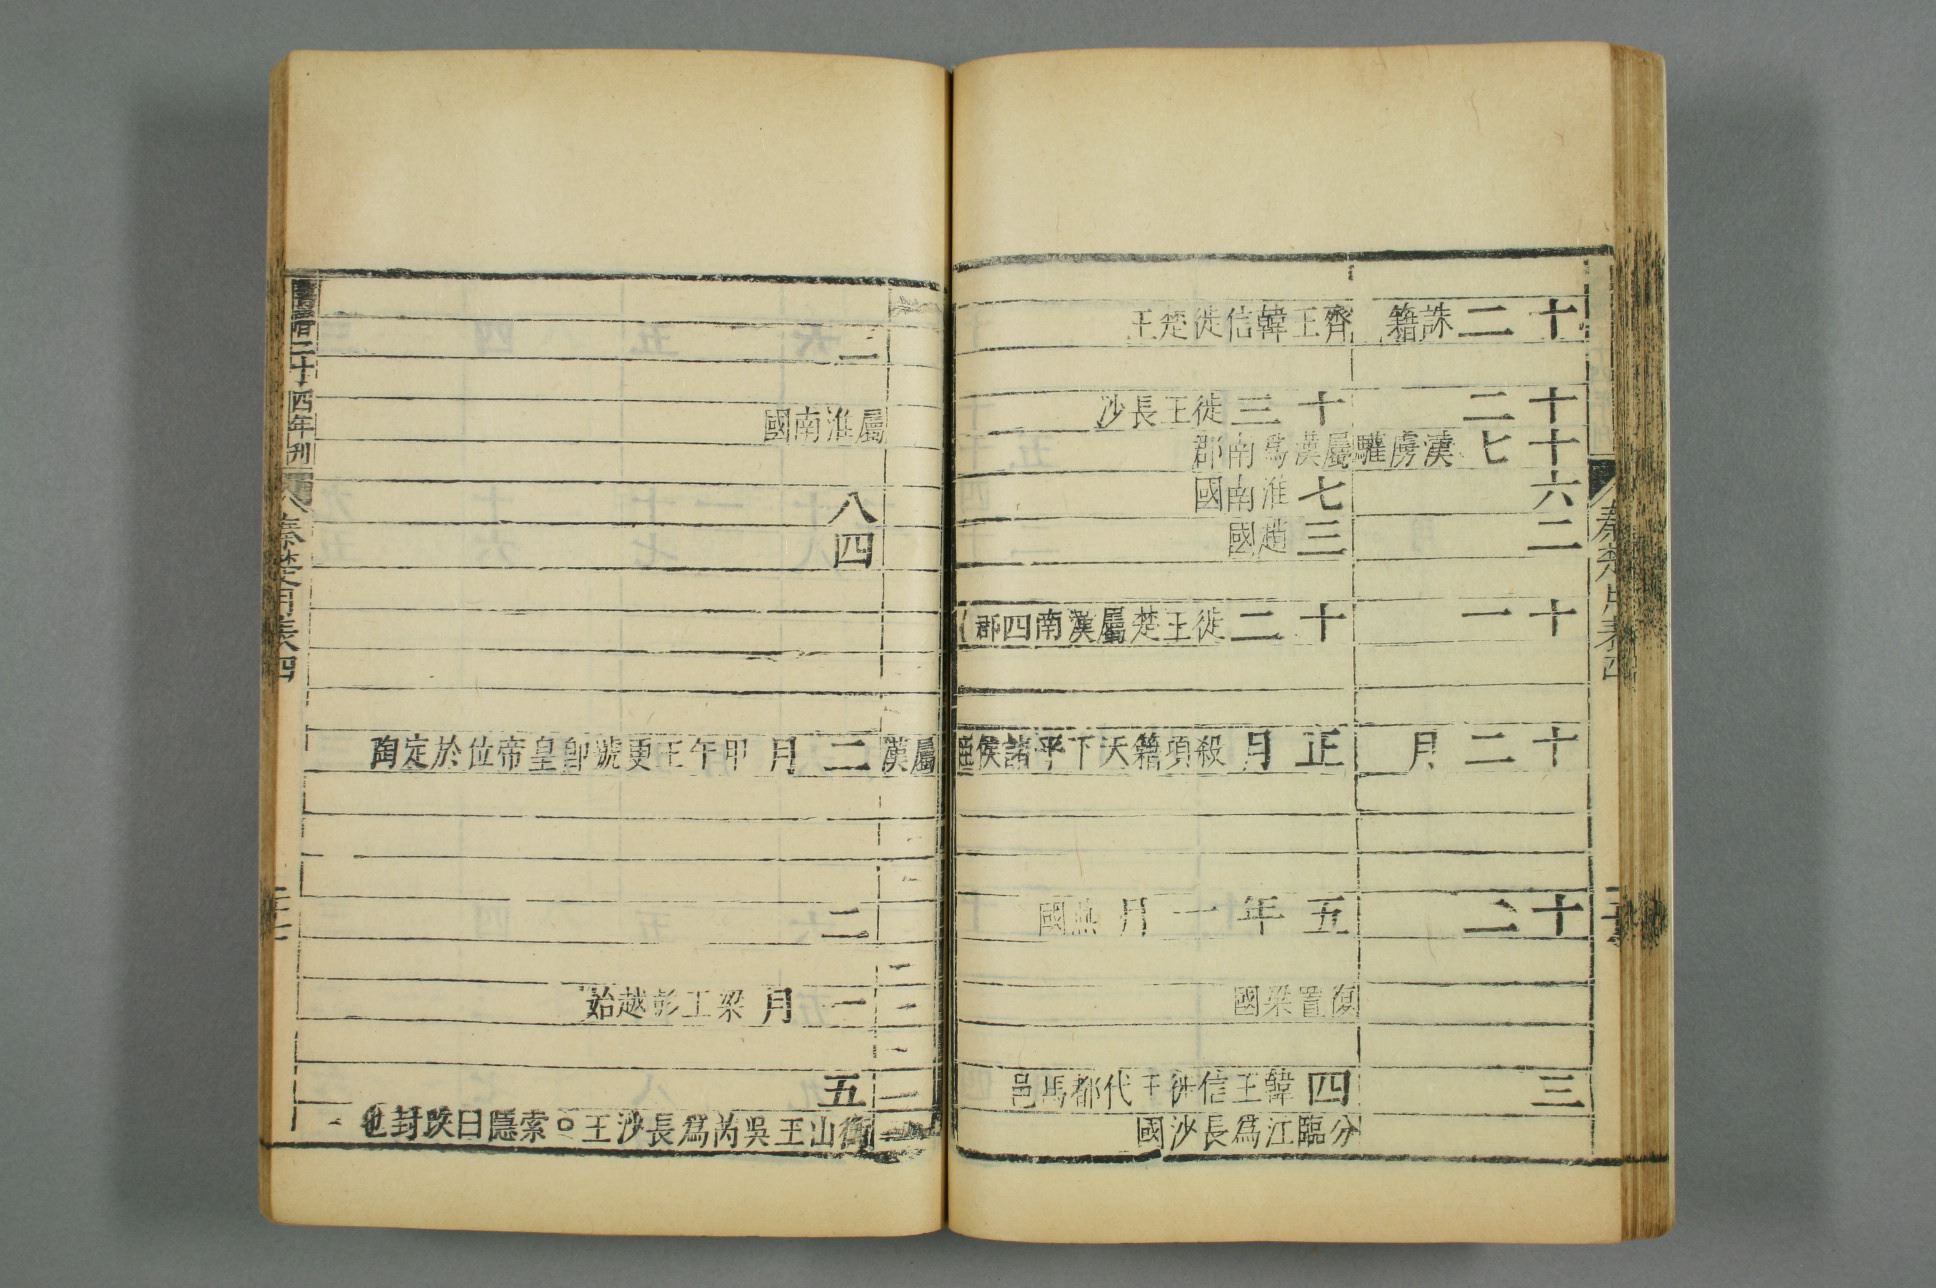 秦楚月表四
十二誅籍
十二
十七漢虜驩
十六
二
十一
十二月
十二
三
齊王韓信徙楚王
十三徙王長沙
屬漢爲南郡
七淮南國
三趙國
十二徙王楚屬漢南四郡
正月殺項籍天下平諸侯
五年一月燕國
復置梁國
四韓王信徙王代都馬邑
分臨江爲長沙國
屬漢
二
屬淮南國
八
四
二月甲午王更號即皇帝位於定陶
二
一月梁王彭越始
五
衡山王吳芮爲長沙王○索隱曰改封也
二十四年刊
秦楚月表四